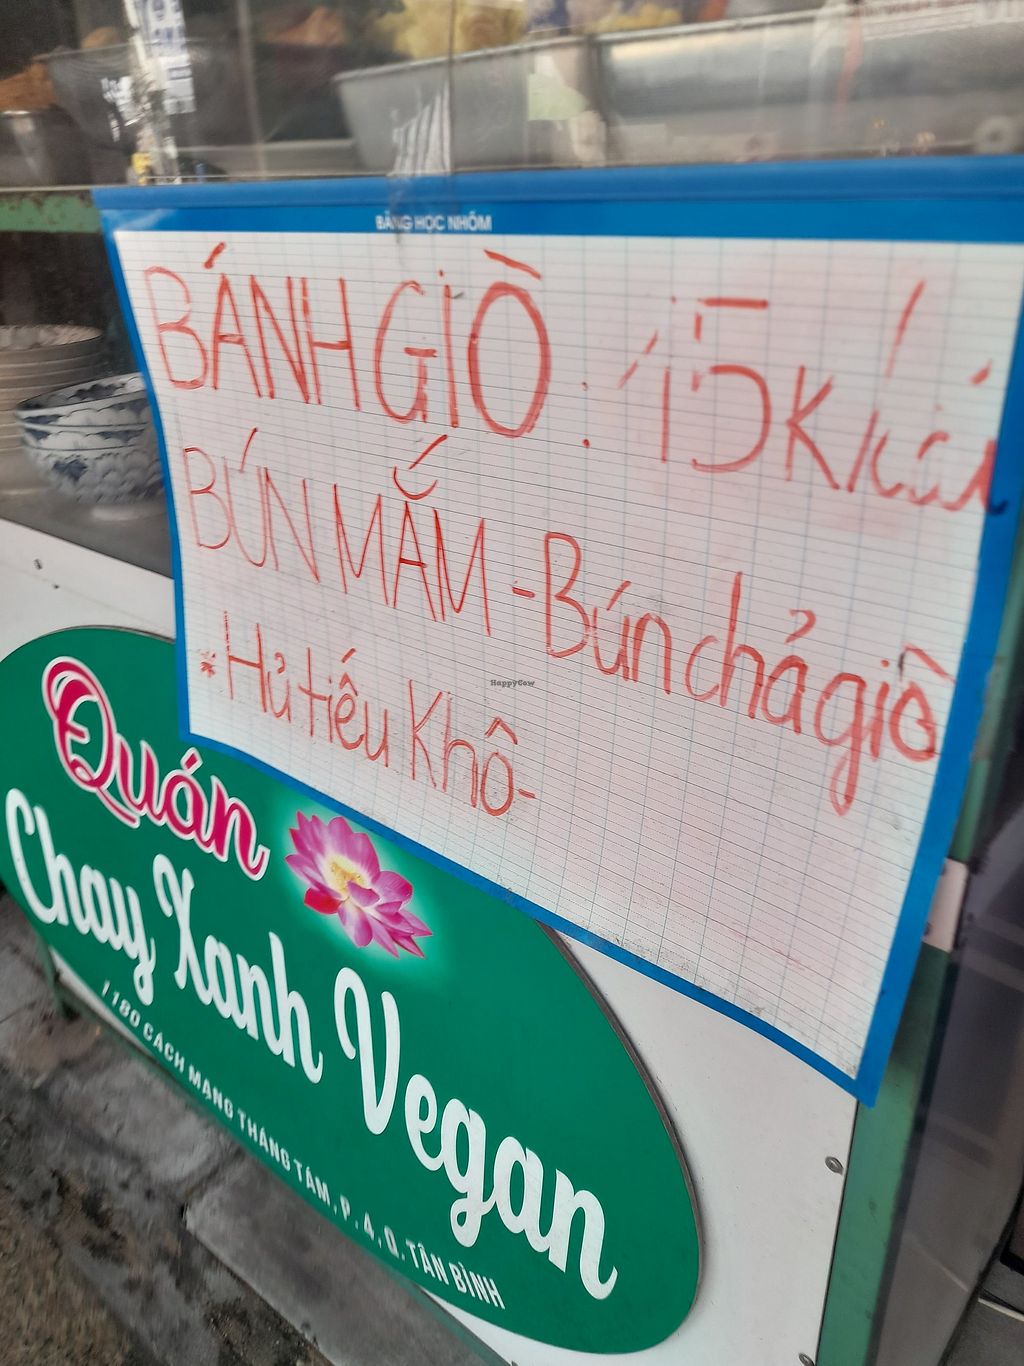 BẢNG HỌC NHÓM
BÁNH GIÒ : 15K /cái
BÚN MẮM - Bún chả giò
* Hủ tiếu Khô -
HappyCow
Quán
Chay Xanh Vegan
1180 CÁCH MẠNG THÁNG TÁM, P. 4, Q. TÂN BÌNH